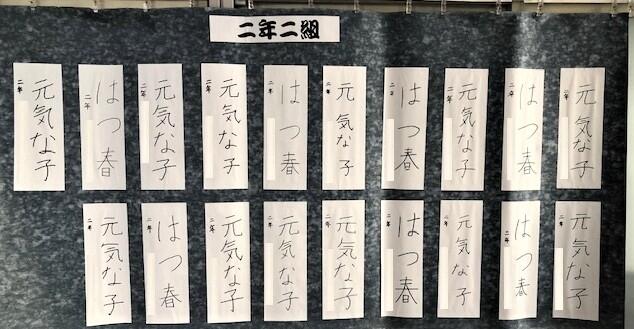 二年二組
元気な子
二年
はつ春
二年
元気な子
二年
はつ春
二年
元気な子
二年
はつ春
二年
元気な子
二年
元気な子
二年
はつ春
二年
元気な子
二年
元気な子
二年
はつ春
二年
元気な子
二年
はつ春
二年
元気な子
二年
元気な子
二年
元気な子
二年
はつ春
二年
元気な子
二年